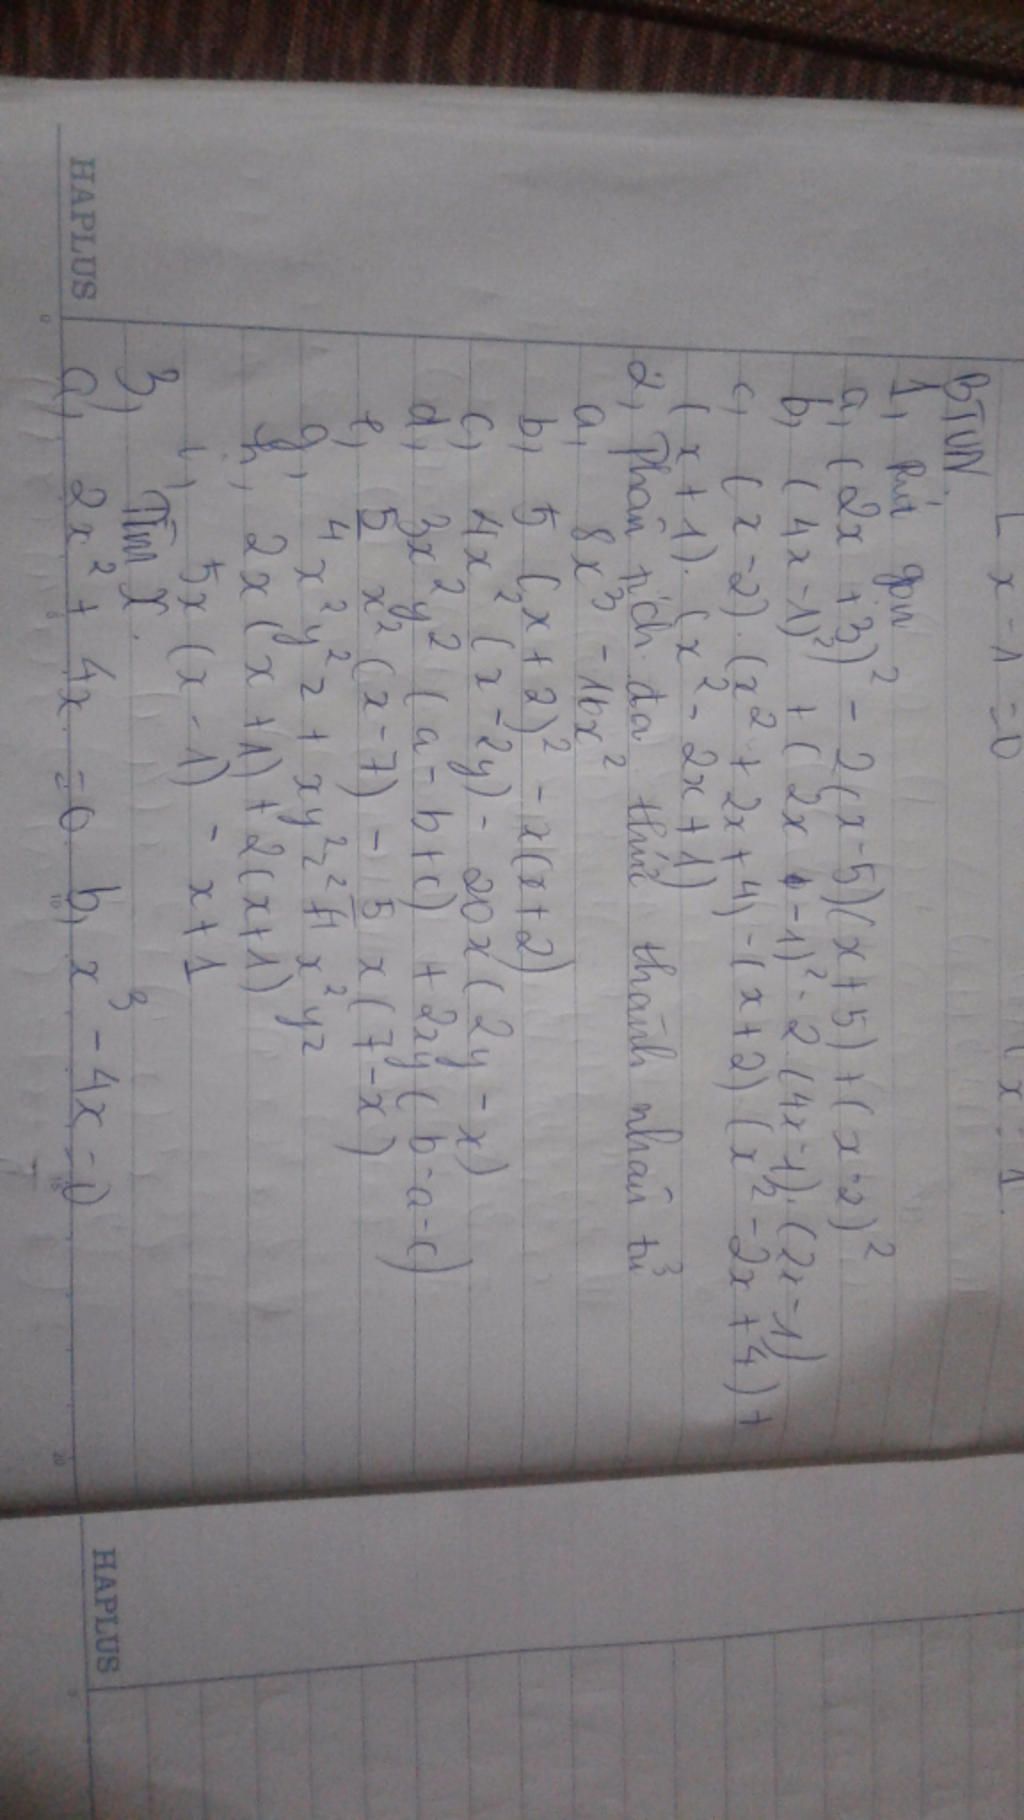 x - 1 = 0
x = 1
BTVN.
1, Rút gọn
a, (2x + 3)² - 2(x-5)(x+5) + (x-2)²
b, (4x-1)² + (2x - 1)² - 2.(4x-1).(2x-1)
c, (x-2).(x² + 2x + 4) - (x+2)(x² - 2x + 4) +
(x+1).(x² - 2x + 1)
2, Phân tích đa thức thành nhân tử
a, 8x³ - 16x²
b, 5(x+2)² - x(x+2)
c, 4x²(x-2y) - 20x(2y-x)
d, 3x²y²(a-b+c) + 2xy(b-a-c)
5x²(x-7) - 5x(7-x)
g, 4x²y²z + xy²z² + x²yz
h, 2x(x+1) + 2(x+1)
i, 5x(x-1) - x+1
3, Tìm x.
a, 2x² + 4x = 0 b, x³ - 4x = 0
HAPLUS
HAPLUS